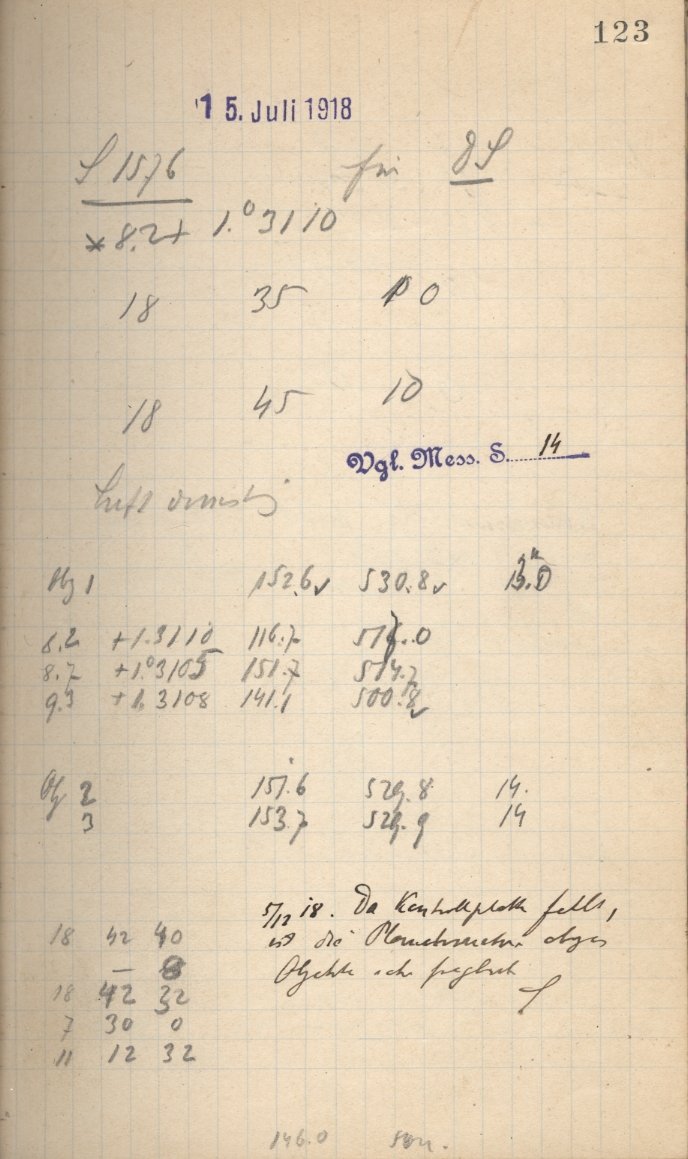 123
15. Juli 1918
S 1576 für
* 8.2 + 1.°3110
18 35 10
18 45 10
Vgl. Mess. S. 14
Luft dunstig
Obj 1 152.6 530.8
8.2 +1.3110 116.7
8.7 +1.°3105 151.7 514.7
9.3 +1.3108 141.1 500.8
Obj 2 151.6 529.8 14.
3 153.7 529.9 14
5/12 18. Da Kontrollplatte fehlt,
ist die Planetennatur obiger
Objekte sehr fraglich
18 42 40
— 8
18 42 32
7 30 0
11 12 32
146.0